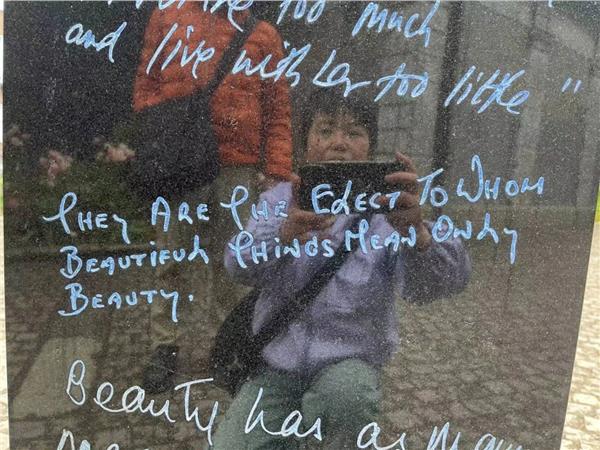 too much
and live with her too little"
They Are The Elect To Whom
Beautiful Things Mean Only
Beauty.
Beauty has as many